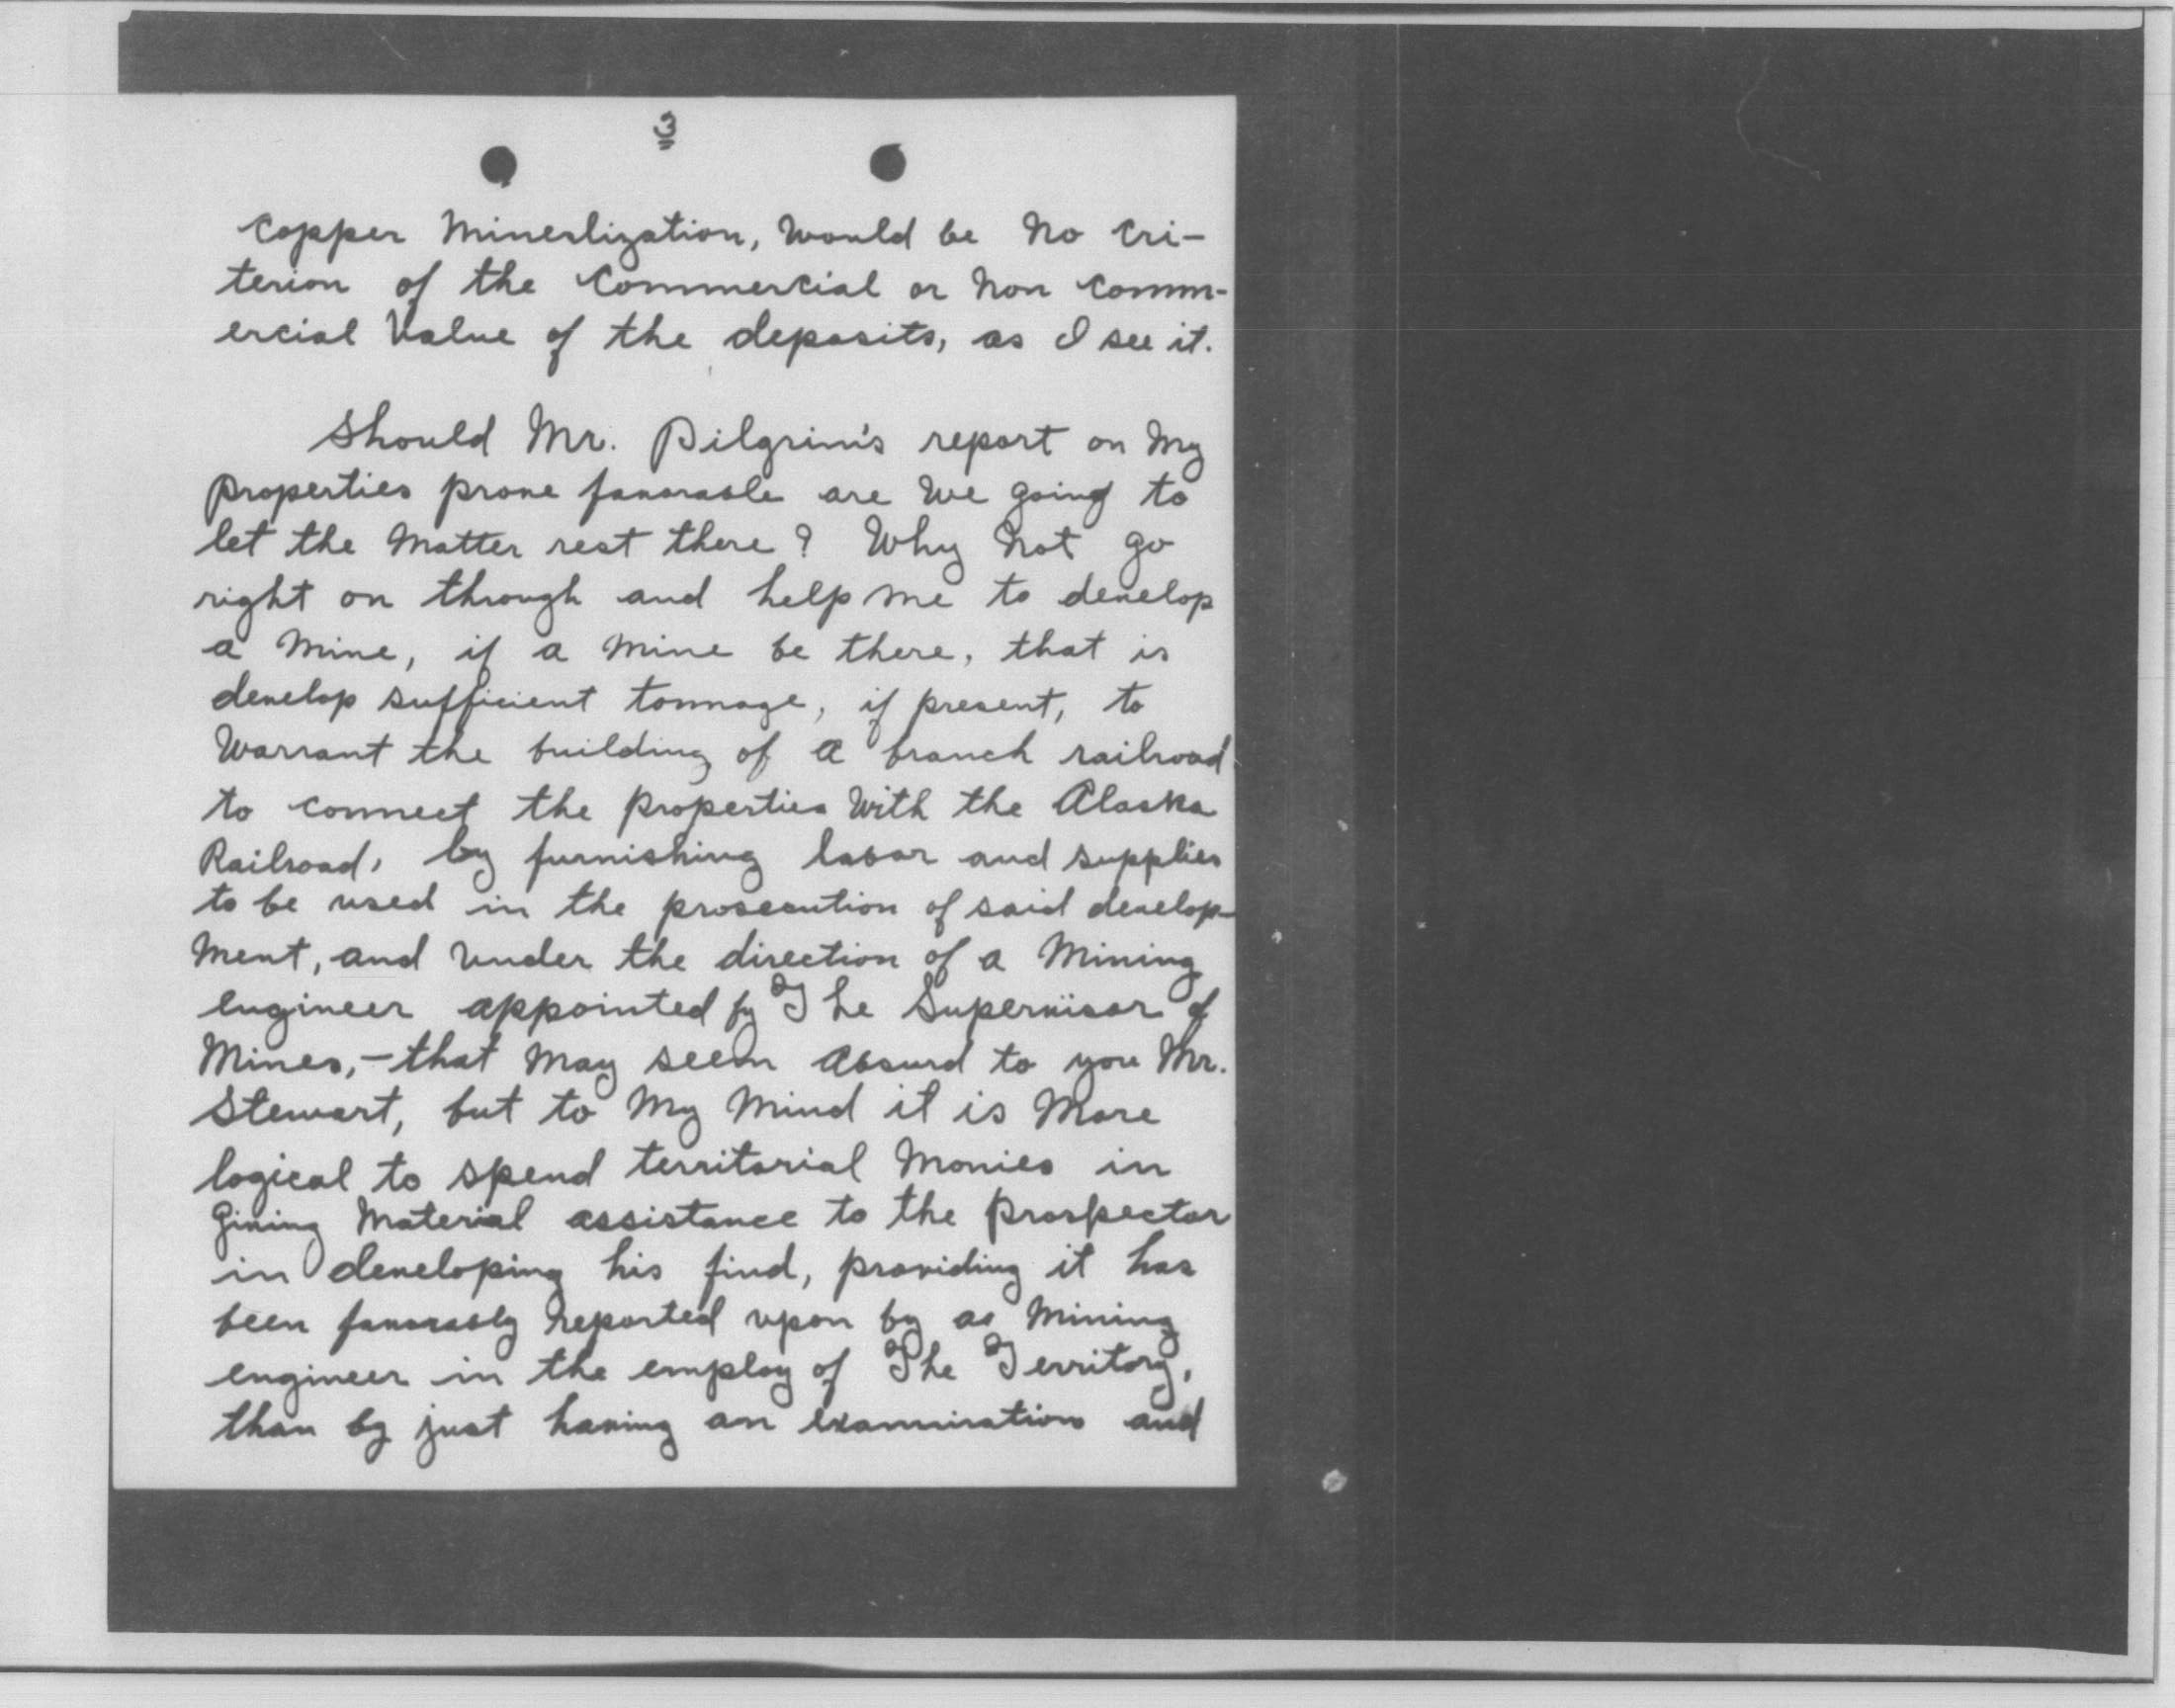 3
Copper Minerlization, Would be No Cri-
terion of the Commercial or Non Comm-
ercial Value of the deposits, as I see it.
Should Mr. Pilgrim's report on My
Properties prove favorable are We going to
let the Matter rest there? Why Not go
right on through and help me to develop
a Mine, if a Mine be there, that is
develop sufficient tonnage, if present, to
Warrant the building of a branch railroad
to connect the Properties With the Alaska
Railroad, by furnishing labor and supplies
to be used in the prosecution of said develop-
Ment, and Under the direction of a Mining
Engineer appointed by The Supervisor of
Mines,-that May seem Absurd to you Mr.
Stewart, but to My Mind it is More
logical to spend territorial Monies in
Giving Material assistance to the Prospector
in developing his find, providing it has
been favorably Reported upon by a Mining
engineer in the employ of The Territory,
than by just having an Examination and